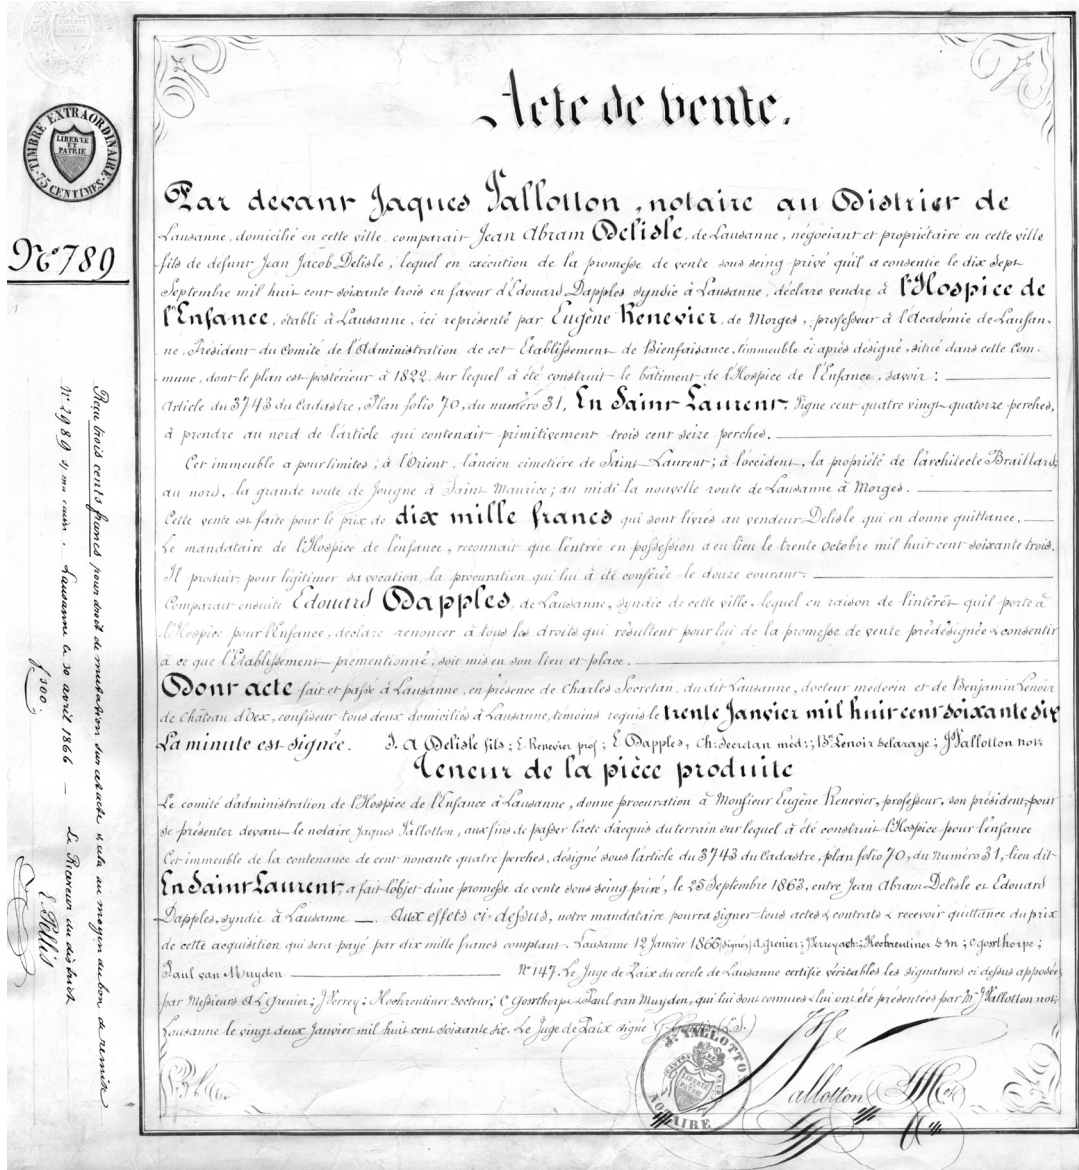 TIMBRE EXTRAORDINAIRE
LIBERTÉ
ET
PATRIE
75 CENTIMES
N° 789
Acte de vente.
Par devant Jaques Vallotton, notaire au District de
Lausanne, domicilié en cette ville, comparait Jean Abram Delisle, de Lausanne, négociant et propriétaire en cette ville
fils de défunt Jean Jacob Delisle, lequel en exécution de la promesse de vente sous seing privé qu'il a consentie le dix sept
Septembre mil huit cent soixante trois en faveur d'Edouard Dapples syndic à Lausanne, déclare vendre à l'Hospice de
l'Enfance, établi à Lausanne, ici représenté par Eugène Renevier, de Morges, professeur à l'Académie de Lausan-
ne, Président du Comité de l'Administration de cet Etablissement de Bienfaisance, l'immeuble ci après désigné, situé dans cette Com-
mune, dont le plan est postérieur à 1822, sur lequel à été construit le bâtiment de l'Hospice de l'Enfance, savoir :
Article du 3743 du Cadastre, Plan folio 70, du numéro 31, En Saint Laurent, Vigne cent quatre vingt quatorze perches,
à prendre au nord de l'article qui contenait primitivement trois cent seize perches.
Cet immeuble a pour limites ; à l'Orient, l'ancien cimetière de Saint Laurent ; à l'occident, la propriété de l'architecte Braillard;
au nord, la grande route de Jougne à Saint Maurice ; au midi la nouvelle route de Lausanne à Morges.
Cette vente est faite pour le prix de dix mille francs qui sont livrés au vendeur Delisle qui en donne quittance.
Le mandataire de l'Hospice de l'enfance, reconnait que l'entrée en possession a eu lieu le trente octobre mil huit cent soixante trois.
Il produit, pour légitimer sa vocation, la procuration qui lui à été conférée le douze courant.
Comparait ensuite Edouard Dapples, de Lausanne, syndic de cette ville, lequel en raison de l'intérêt qu'il porte à
l'Hospice pour l'Enfance, déclare renoncer à tous les droits qui résultent pour lui de la promesse de vente prédésignée & consentir
à ce que l'Etablissement prémentionné, soit mis en son lieu et place.
Dont acte fait et passé à Lausanne, en présence de Charles Secretan, du dit Lausanne, docteur medecin et de Benjamin Lenoir
de Château d'Oex, confiseur tous deux domiciliés à Lausanne, témoins requis le trente Janvier mil huit cent soixante six
La minute est signée. J. A Delisle fils ; E. Renevier prof ; E Dapples, Ch: Secretan méd: ; Bn Lenoir Delaraye ; J. Vallotton not:
Teneur de la pièce produite
Le comité d'administration de l'Hospice de l'Enfance à Lausanne, donne procuration à Monsieur Eugène Renevier, professeur, son président, pour
se présenter devant le notaire Jaques Vallotton, aux fins de passer l'acte d'acquis du terrain sur lequel à été construit l'Hospice pour l'enfance
Cet immeuble de la contenance de cent nonante quatre perches, désigné sous l'article du 3743 du Cadastre, plan folio 70, du Numéro 31, lieu dit
En Saint Laurent, a fait l'objet d'une promesse de vente sous seing privé, le 25 Septembre 1863, entre Jean Abram Delisle et Edouard
Dapples, syndic à Lausanne. Aux effets ci-dessus, notre mandataire pourra signer tous actes & contrats & recevoir quittance du prix
de cette acquisition qui sera payé par dix mille francs comptant. Lausanne 12 Janvier 1866 (signés) A. Grenier ; J Verrey arch: ; Hochreutiner D m ; C Gosrthorpe ;
Paul van Muyden N° 147. Le Juge de Paix du cercle de Lausanne certifie véritables les signatures ci dessus apposées
par Messieurs A L Grenier ; J Verrey ; Hochreutiner docteur ; C Gosrthorpe & Paul van Muyden, qui lui sont connues & lui ont été présentées par Mr J Vallotton not:
Lausanne le vingt deux Janvier mil huit cent soixante six. Le Juge de Paix signé (L.S.)
J. VALLOTTON
CANTON DE VAUD
LIBERTÉ
ET
PATRIE
NOTAIRE
Vallotton
Reçu trois cents francs pour droit de mutation sur cet acte & cela au moyen du bon de remise
N° 2989 Lausanne le 30 avril 1866 — Le Receveur du district
f 300,
E. Pellis